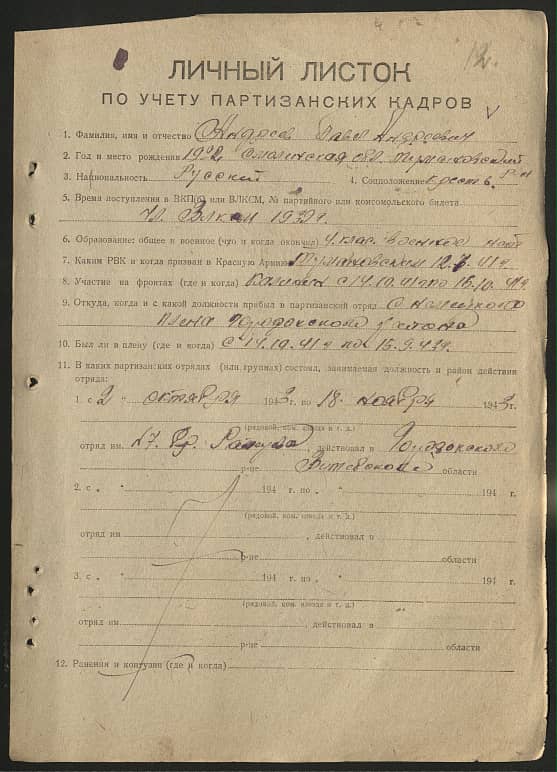 12.
ЛИЧНЫЙ ЛИСТОК
ПО УЧЕТУ ПАРТИЗАНСКИХ КАДРОВ
1. Фамилия, имя и отчество Андреев Павел Андреевич
2. Год и место рождения Смоленская обл.
р-н
3. Национальность Русский 4. Соцположение крестьян.
5. Время поступления в ВКП(б) или ВЛКСМ, № партийного или комсомольского билета
Чл. Влксм 1939 г.
6. Образование: общее и военное (что и когда окончил) 4 клас. военное
7. Каким РВК и когда призван в Красную Армию 12.7.41 г.
8. Участие на фронтах (где и когда) с 14.10.41 по 15.10.41 г.
9. Откуда, когда и с какой должности прибыл в партизанский отряд С немецкого
плена Городокского района
10. Был ли в плену (где и когда) с 14.10.41 г по 15.9.43 г.
11. В каких партизанских отрядах (или группах) состоял, занимаемая должность и район действия
отряда:
1. с 2 " октября 1943 г. по 18 " ноября 1943 г.
(рядовой, ком. взвода и т. д.)
отряд им. , действовал в Городокского
р-не Витебской области
2. с " 194 г. по " 194 г.
(рядовой, ком. взвода и т. д.)
отряд им , действовал в
р-не области
3. с " 194 г. по " 194 г.
(рядовой, ком. взвода и т. д.)
отряд им. , действовал в
р-не области
12. Ранения и контузии (где и когда)